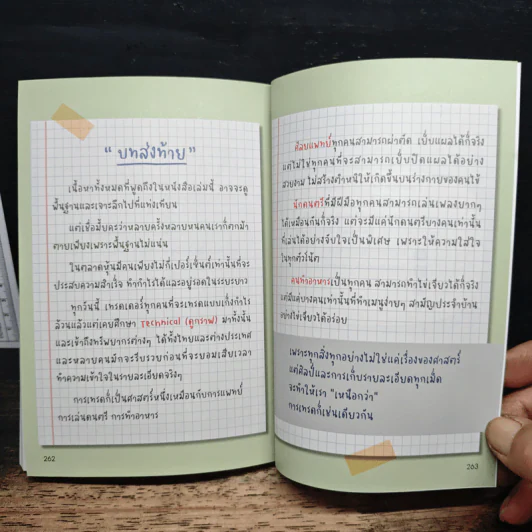 “ บทส่งท้าย ”
เนื้อหาทั้งหมดที่พูดถึงในหนังสือเล่มนี้ อาจจะดู
พื้นฐานและเจาะลึกไปที่แท่งเทียน
แต่เชื่อมั้ยคะว่าหลายครั้งหลายหนคนเราก็ตกม้า
ตายเพียงเพราะพื้นฐานไม่แน่น
ในตลาดหุ้นมีคนเพียงไม่กี่เปอร์เซ็นต์เท่านั้นที่จะ
ประสบความสำเร็จ ทำกำไรได้และอยู่รอดในระยะยาว
ทุกวันนี้ เทรดเดอร์ทุกคนที่จะเทรดแบบเก็งกำไร
ล้วนแล้วแต่เคยศึกษา Technical (ดูกราฟ) มาทั้งนั้น
และเข้าถึงทรัพยากรต่างๆ ได้ทั้งไทยและต่างประเทศ
และหลายคนมักจะรีบรวยก่อนที่จะยอมเสียเวลา
ทำความเข้าใจในรายละเอียดจริงๆ
การเทรดก็เป็นศาสตร์หนึ่งเหมือนกับการแพทย์
การเล่นดนตรี การทำอาหาร
262
ศัลยแพทย์ทุกคนสามารถผ่าตัด เย็บแผลได้ก็จริง
แต่ไม่ใช่ทุกคนที่จะสามารถเย็บปิดแผลได้อย่าง
สวยงาม ไม่สร้างตำหนิให้เกิดขึ้นบนร่างกายของคนไข้
นักดนตรีที่มีฝีมือทุกคนสามารถเล่นเพลงยากๆ
ได้เหมือนกันก็จริง แต่จะมีแค่นักดนตรีบางคนเท่านั้น
ที่เล่นได้อย่างจับใจเป็นพิเศษ เพราะให้ความใส่ใจ
ในทุกตัวโน้ต
คนทำอาหารเป็นทุกคน สามารถทำไข่เจียวได้ก็จริง
แต่มีแค่บางคนเท่านั้นที่ทำเมนูง่ายๆ สามัญประจำบ้าน
อย่างไข่เจียวได้อร่อย
เพราะทุกสิ่งทุกอย่างไม่ใช่แค่เรื่องของศาสตร์
แต่ศิลป์และการเก็บรายละเอียดทุกเม็ด
จะทำให้เรา “เหนือกว่า”
การเทรดก็เช่นเดียวกัน
263